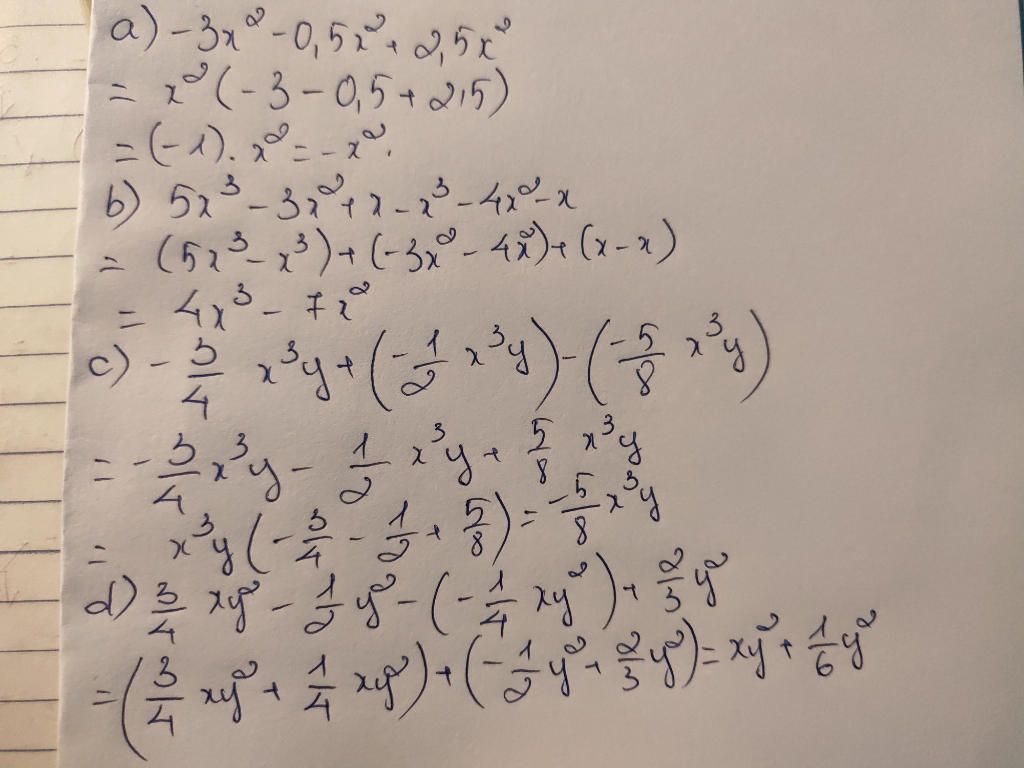 a) -3x² - 0,5x² + 2,5x²
= x² (-3 - 0,5 + 2,5)
= (-1). x² = -x².
b) 5x³ - 3x² + x - x³ - 4x² - x
= (5x³ - x³) + (-3x² - 4x²) + (x - x)
= 4x³ - 7x²
c) -3/4 x³y + (-1/2 x³y) - (-5/8 x³y)
= -3/4 x³y - 1/2 x³y + 5/8 x³y
= x³y (-3/4 - 1/2 + 5/8) = -5/8 x³y
d) 3/4 xy² - 1/2 y² - (-1/4 xy²) + 2/3 y²
= (3/4 xy² + 1/4 xy²) + (-1/2 y² + 2/3 y²) = xy² + 1/6 y²